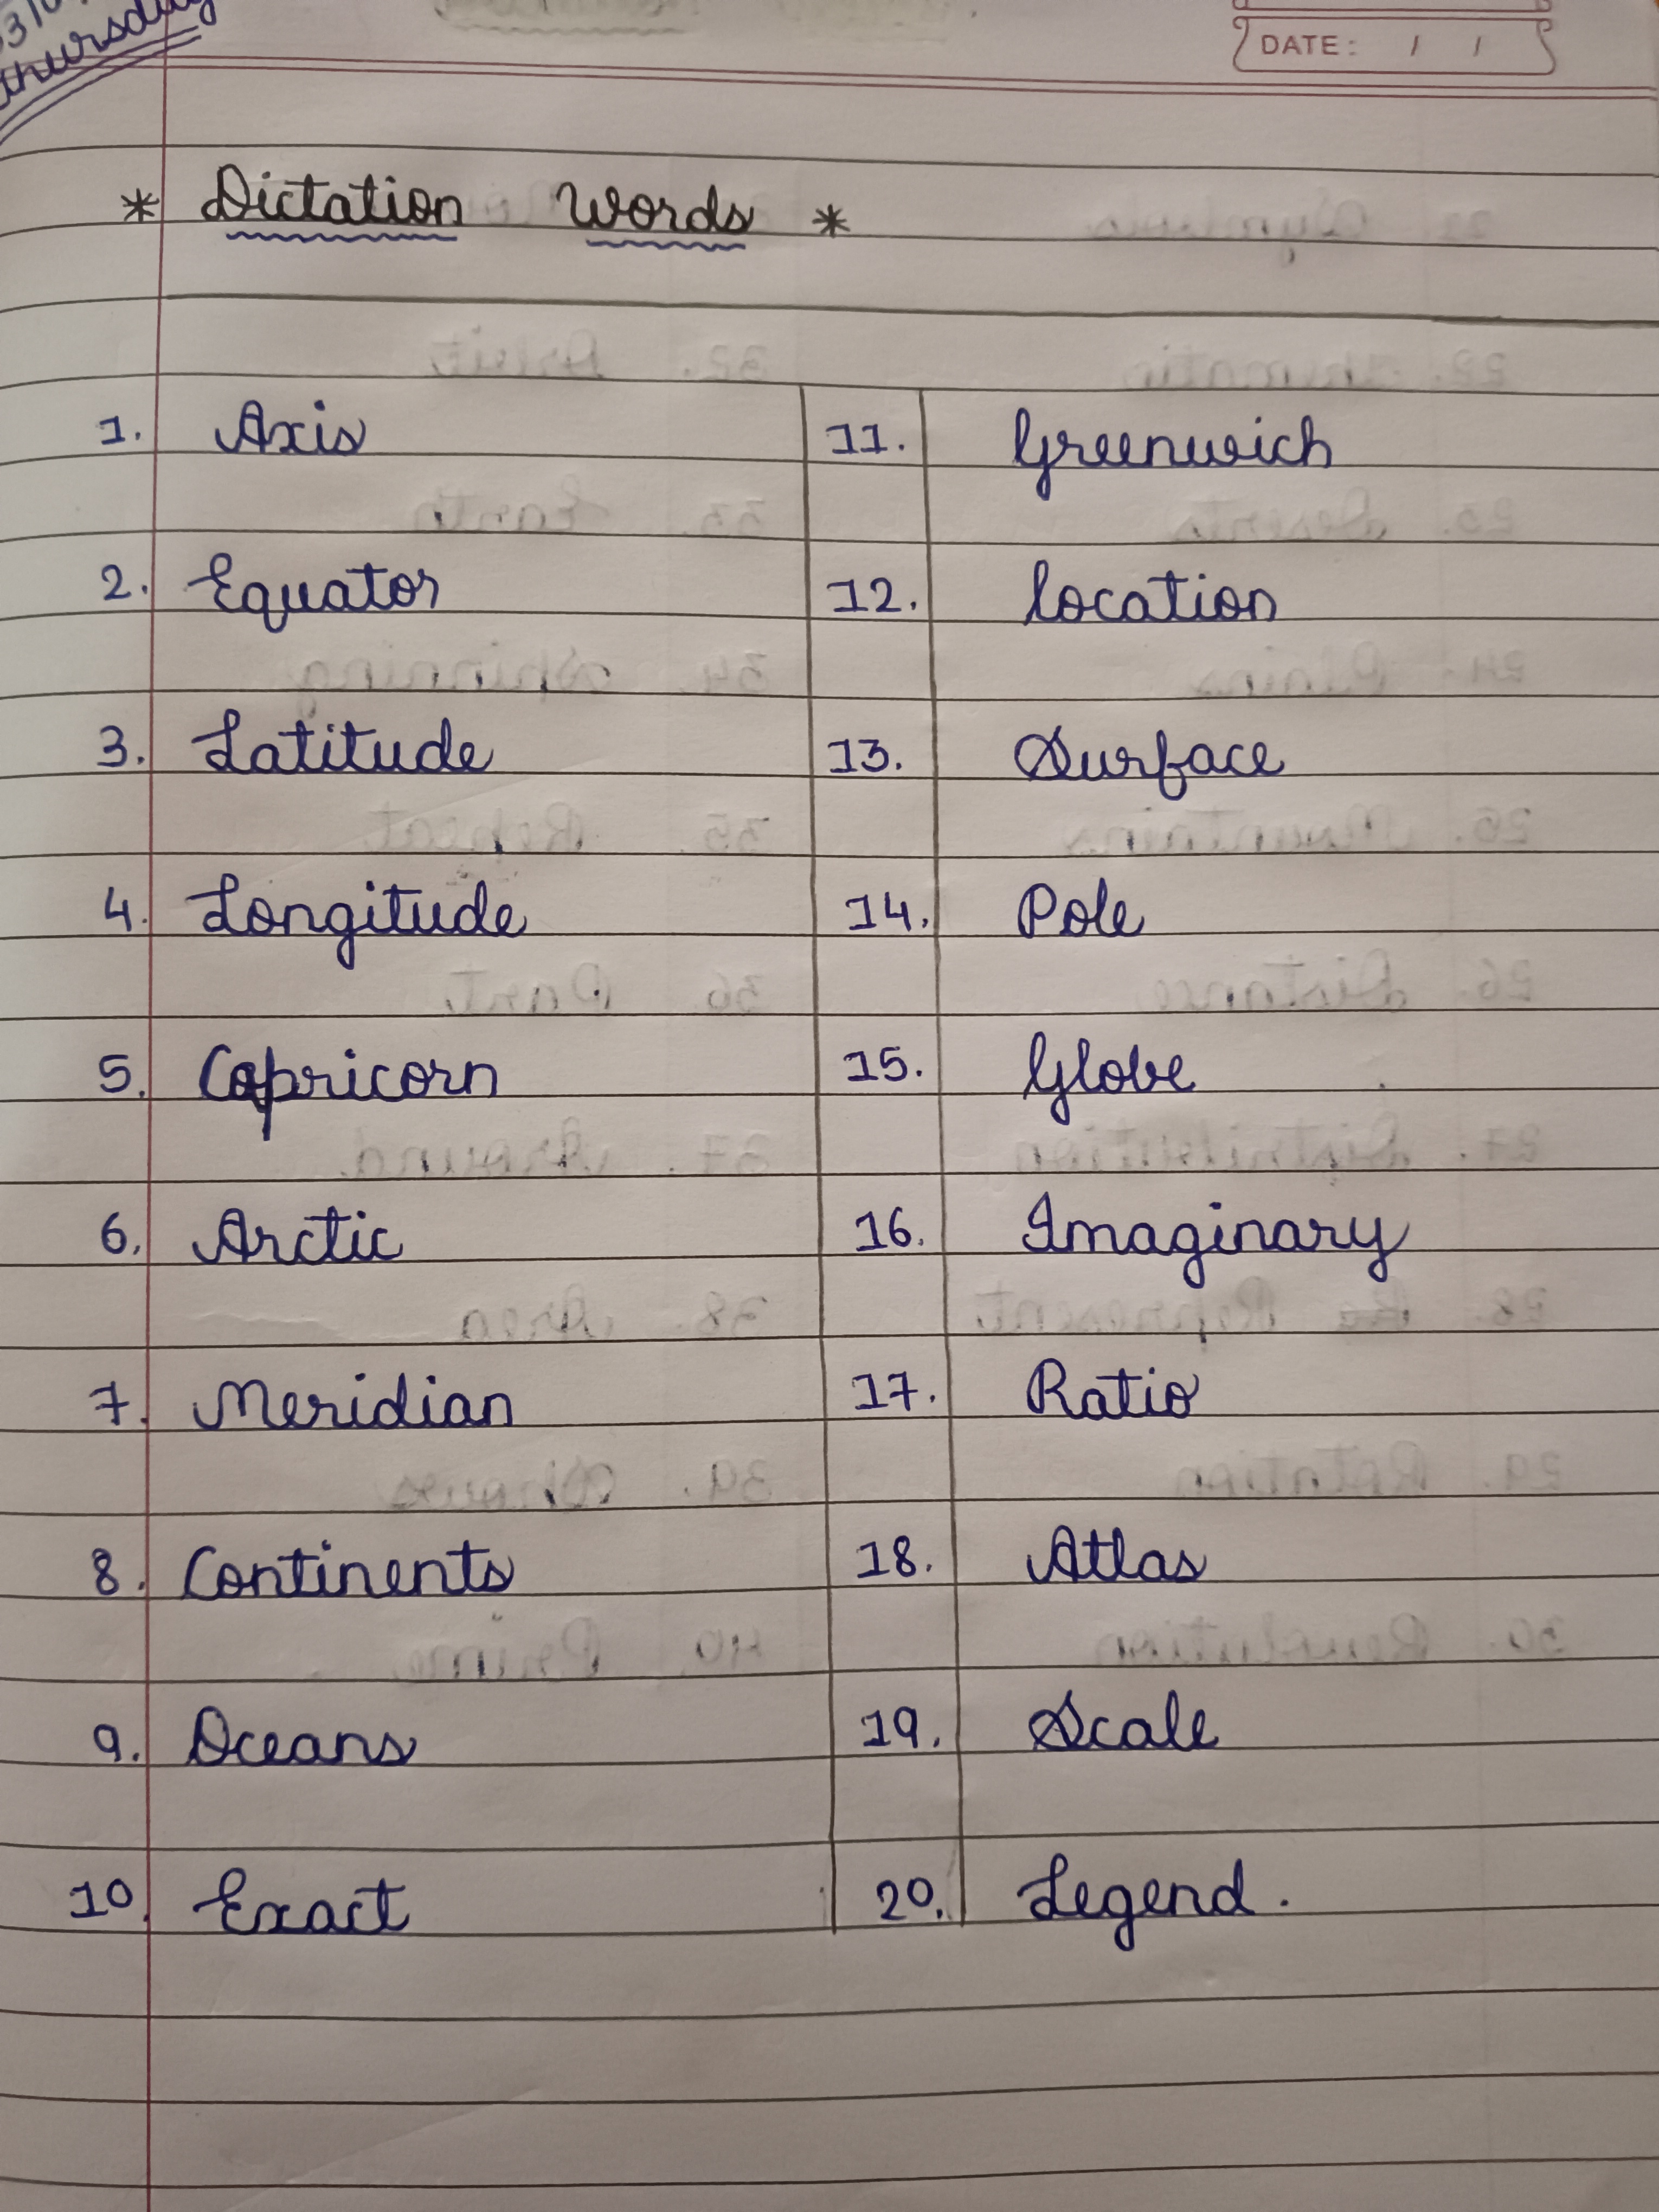 Thursday
DATE: / /
* Dictation Words *
1. Axis 11. Greenwich
2. Equator 12. location
3. Latitude 13. Surface
4. Longitude 14. Pole
5. Capricorn 15. Globe
6. Arctic 16. Imaginary
7. Meridian 17. Ratio
8. Continents 18. Atlas
9. Oceans 19. Scale
10. Exact 20. Legend.